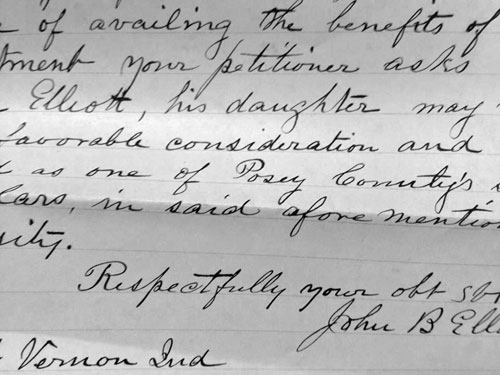 of availing the benefits of
tment your petitioner asks
Elliott, his daughter may
favorable consideration and
as one of Posey County's
lars, in said afore mention
sity.
Respectfully your obt svt
John B Ell
Vernon Ind